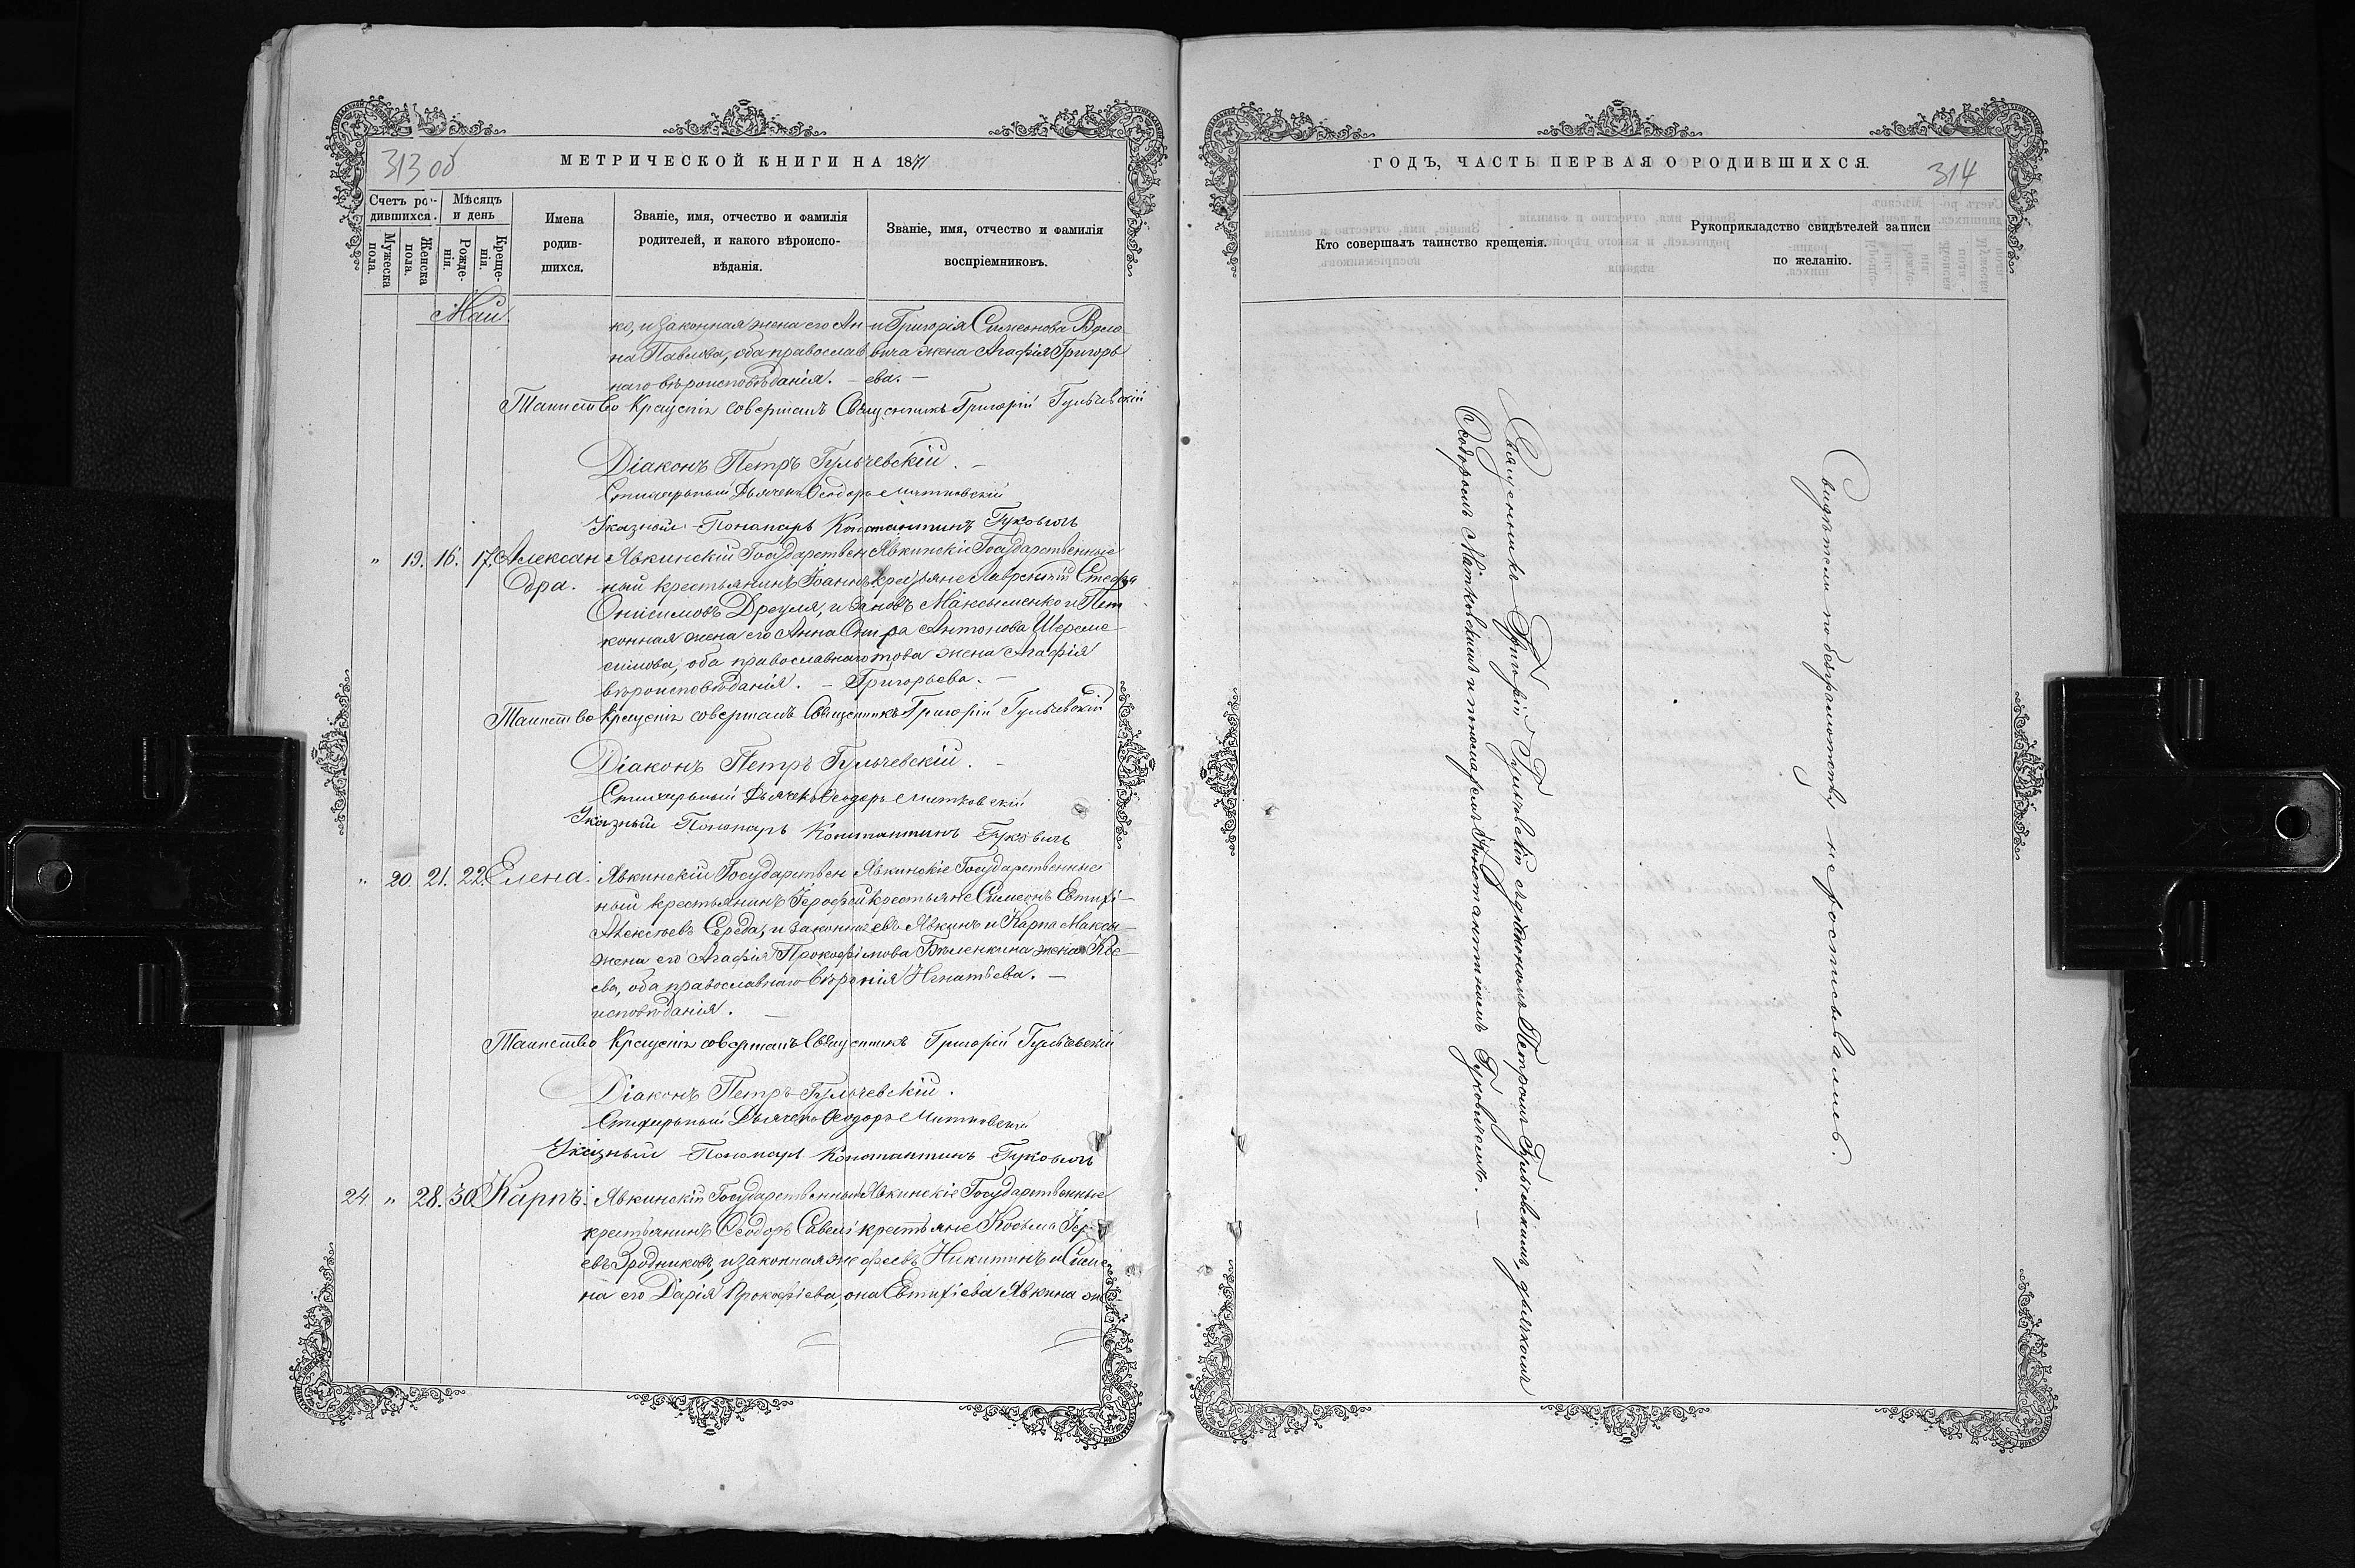 313 об
МЕТРИЧЕСКОЙ КНИГИ НА 1871
Счетъ ро-
дившихся.
Мужеска
пола.
Женска
пола.
Мѣсяцъ
и день
Рожде-
нія.
Креще-
нія.
Имена
родив-
шихся.
Званіе, имя, отчество и фамилія
родителей, и какого вѣроиспо-
вѣданія.
Званіе, имя, отчество и фамилія
воспріемниковъ.
Маій.
ко, и законная жена его Ан-
на Павлова, оба православ
наго вѣроисповѣданія. –
и Григорія Симеонова
вича жена Агафія Григорь
ева. –
Таинство Крещенія совершалъ Священникъ Григорій Гульчевскій
Діаконъ Петръ Гульчевскій. –
Стихарный Дьячекъ Ѳеодоръ Митковскій
Указный Пономарь Константинъ Гуковичъ
" 19. 16. 17. Алексан
дра.
Явкинскій Государствен
ный крестьянинъ Іоаннъ
Онисимовъ Дреуля, и за
конная жена его Анна Они
симова, оба православнаго
вѣроисповѣданія. –
Явкинскіе Государственные
крестьяне Лаврентій Стефа
новъ Максыменко и Пет
ра Антонова Шереме
това жена Агафія
Григорьева. –
Таинство Крещенія совершалъ Священникъ Григорій Гульчевскій
Діаконъ Петръ Гульчевскій. –
Стихарный Дьячекъ Ѳеодоръ Митковскій
Указный Пономарь Константинъ Гуковичъ
" 20 21. 22. Елена.
Явкинскій Государствен
ный крестьянинъ Іерофей
Алексѣевъ Середа, и законная
жена его Агафія Прокофі
ева, оба православнаго вѣро
исповѣданія. –
Явкинскіе Государственные
крестьяне Симеонъ Евтихі-
евъ Явкинъ и Карпа Макси
мова Бѣленкина жена Ксе
нія Игнатьева. –
Таинство Крещенія совершалъ Священникъ Григорій Гульчевскій
Діаконъ Петръ Гульчевскій.
Стихарный Дьячекъ Ѳеодоръ Митковскій
Указный Пономарь Константинъ Гуковичъ
24 " 28. 30. Карпъ.
Явкинскій Государственный
крестьянинъ Ѳеодоръ Савелі
евъ Зродниковъ, и законная же
на его Дарія Прокофіева,
Явкинскіе Государственные
крестьяне Косьма Іер
фѣевъ Никитинъ и Симе
она Евтихіева Явкина же
ГОДЪ, ЧАСТЬ ПЕРВАЯ О РОДИВШИХСЯ.
314
Кто совершалъ таинство крещенія.
Рукоприкладство свидѣтелей записи
по желанію.
Священникъ Григорій Гульчевскій съ діакономъ Петромъ Гульчевскимъ, дьячкомъ
Ѳеодоромъ Митковскимъ и пономаремъ Константиномъ Гуковичемъ. –
Свидѣтели по безграмотству не росписывались.